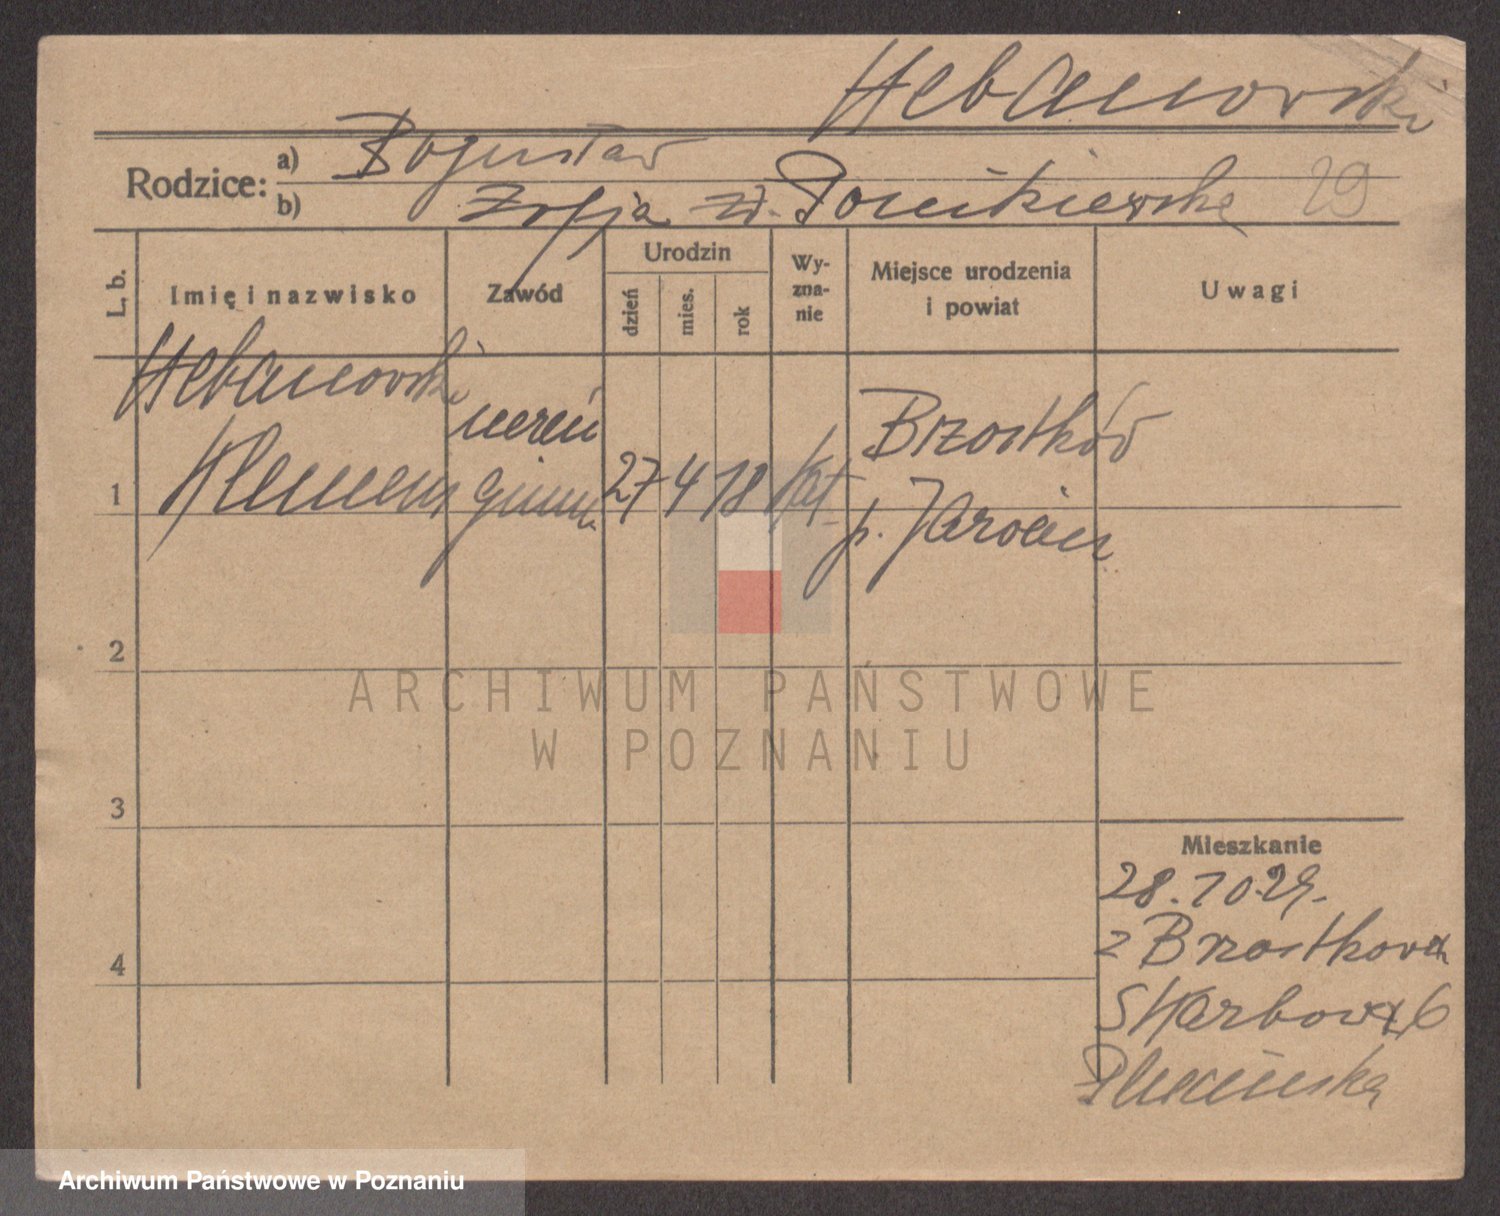 Hebanowski
Rodzice:
a) Bogusław
b) Zofja zd. Ponikiewska 29
L. b.
Imię i nazwisko
Zawód
Urodzin
dzień
mies.
rok
Wy-
zna-
nie
Miejsce urodzenia
i powiat
Uwagi
Hebanowski
Klemens
uczeń
gimn.
1
27
4
18
kat.
Brzostków
p. Jarocin
2
3
4
Mieszkanie
28.10.29.
z Brzostkowa
Skarbowa 6
ARCHIWUM PAŃSTWOWE
W POZNANIU
Archiwum Państwowe w Poznaniu